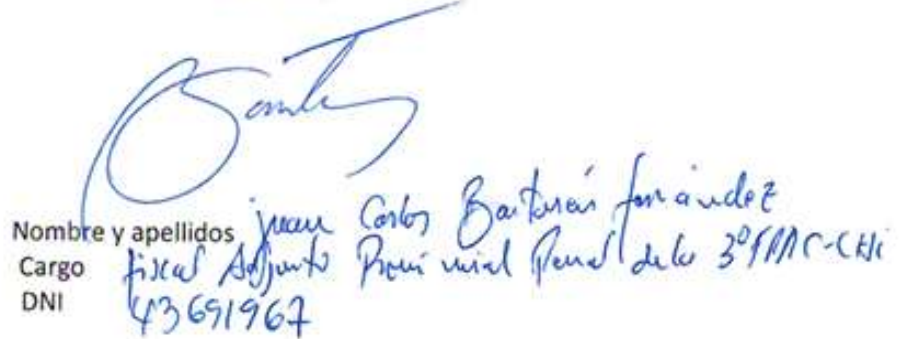 Nombre y apellidos Juan Carlos Barturén Fernández
Cargo fiscal Adjunto Provincial Penal de la 3º FPPC-CHi
DNI 43691967